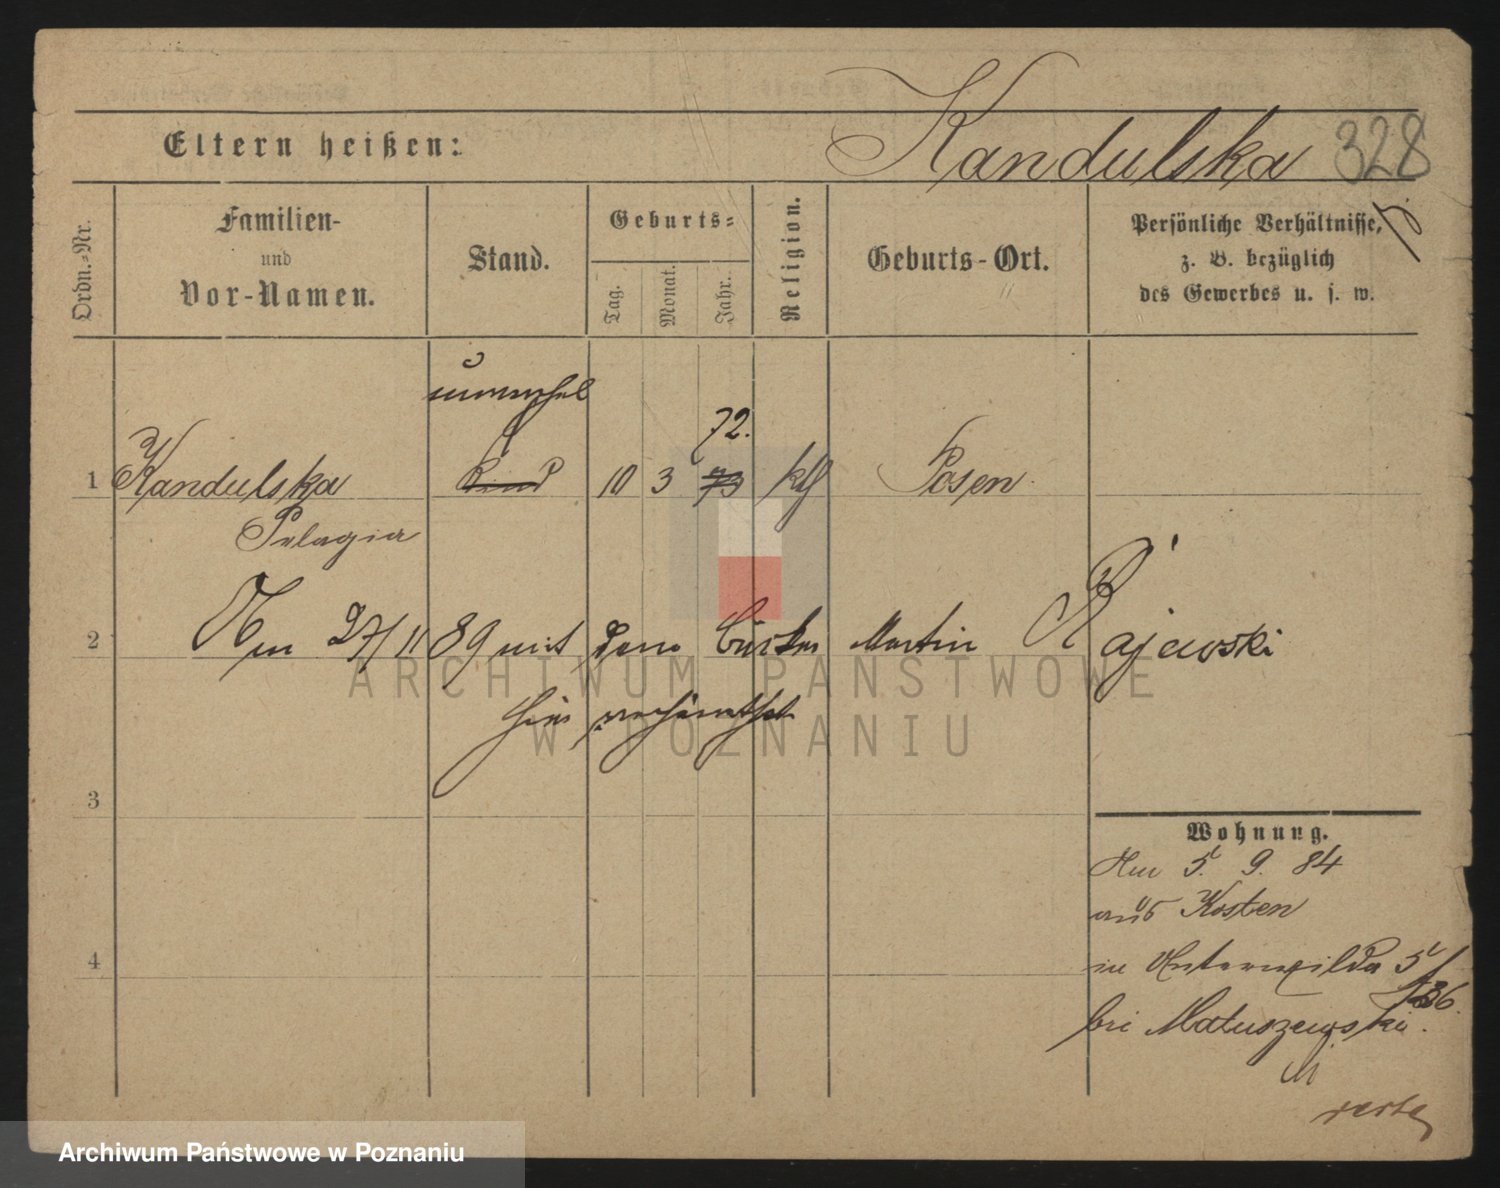 Eltern heißen: Kandulska 328
Ordn.-Nr.
Familien-
und
Vor-Namen.
Stand.
Geburts-
Tag.
Monat.
Jahr.
Religion.
Geburts-Ort.
Persönliche Verhältnisse,
z. B. bezüglich
des Gewerbes u. s. w.
unverehel
72.
1 Kandulska Kind 10 3 73 kth Posen
Pelagia
2 Am 27/11 89 mit dem Martin Rajewski
hier verheirathet
3
Wohnung.
Am 5. 9. 84
aus Kosten
in Unterwilda 5
4
bei Matuszewski.
ARCHIWUM PAŃSTWOWE
W POZNANIU
Archiwum Państwowe w Poznaniu